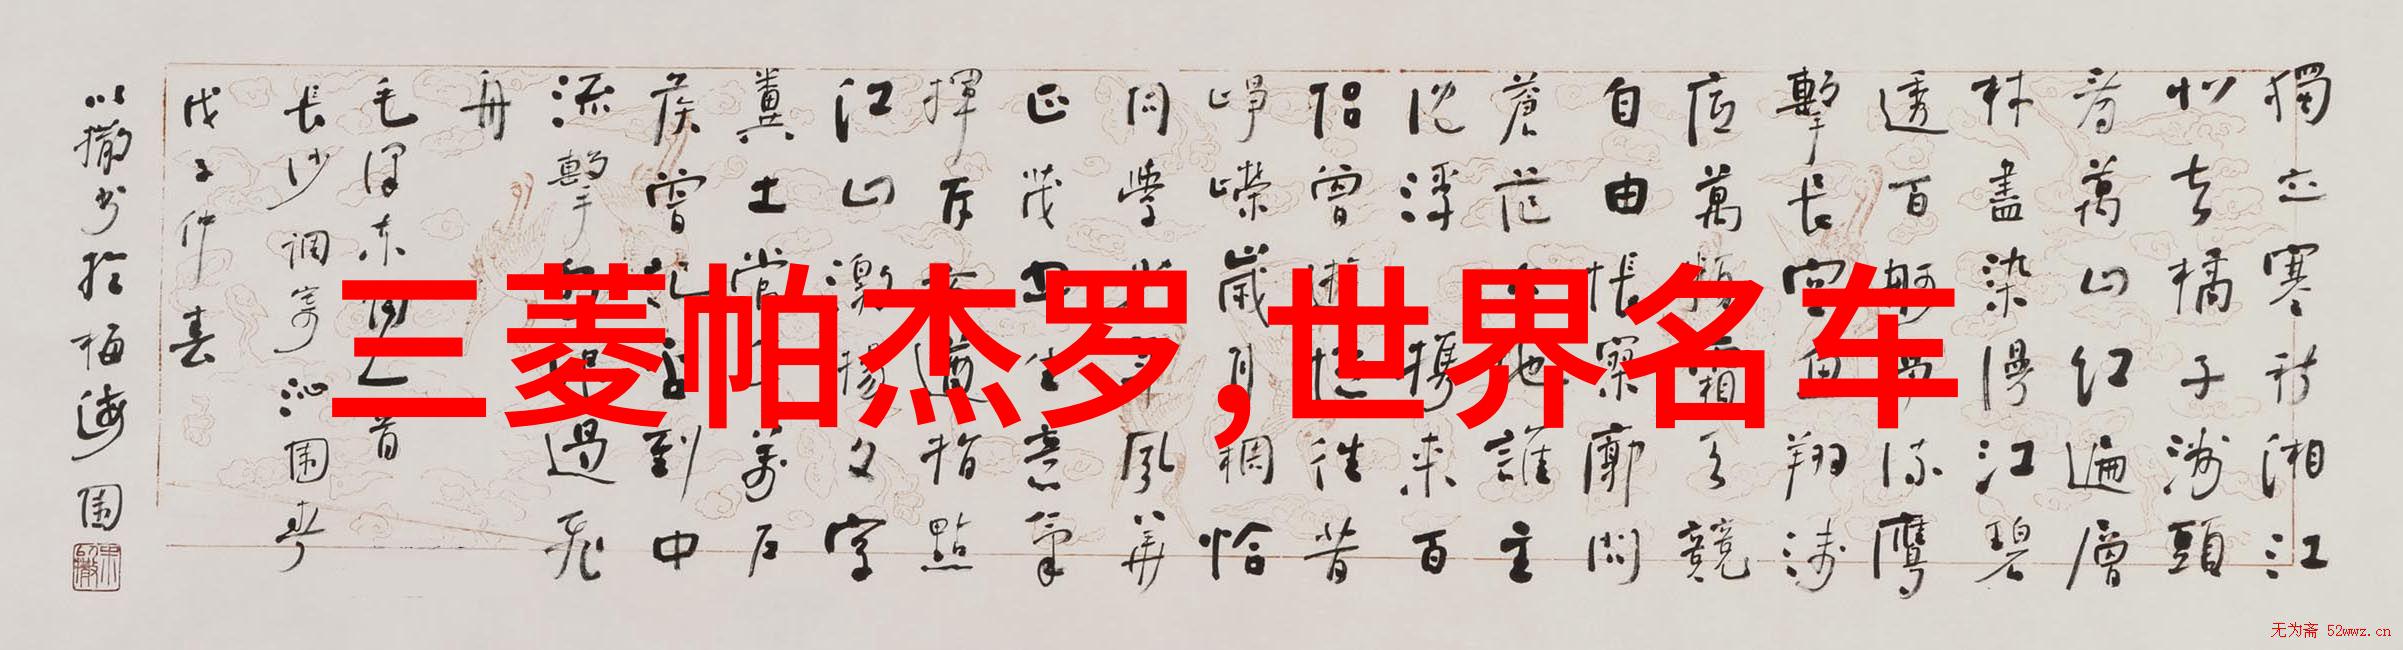 三菱帕杰罗,世界名车
獨立寒秋湘江
北去橘子洲頭
看萬山红遍層
林盡染漫江碧
透百舸爭流鹰
擊長空魚翔淺
底萬類霜天競
自由悵寥廓問
蒼茫大地誰主
沈浮攜来百
侣曾遊憶往昔
崢嶸歲月稠恰
同學少年風華
正茂書生意氣
揮斥方遒指點
江山激揚文字
糞土當年萬户
侯曾記否到中
流擊水浪遏飛
舟
毛澤東詞一首
長沙調寄沁園春
戊子仲春
以撒書於梅海園
无为斋 52wwz.cn